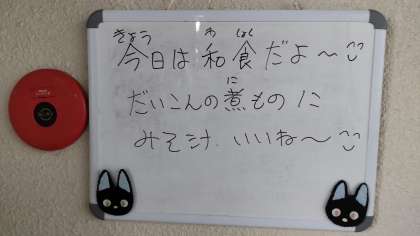 きょう わ しょく
今日は 和食だよ〜
に
だいこんの煮もの に
みそ汁. いいね〜